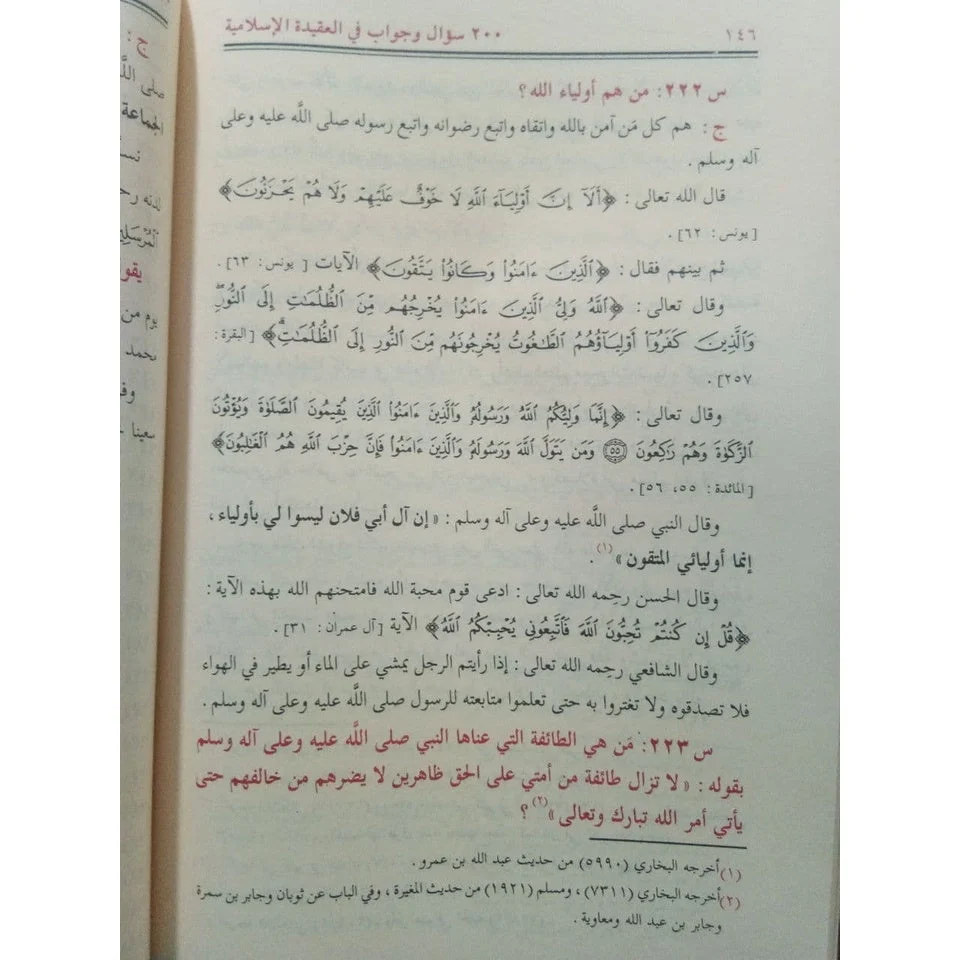 ١٤٦ ٢٠٠ سؤال وجواب في العقيدة الإسلامية
س ٢٢٢: من هم أولياء الله؟
ج : هم كل مَن آمن بالله واتقاه واتبع رضوانه واتبع رسوله صلى الله عليه وعلى
آله وسلم .
قال الله تعالى : ﴿أَلَآ إِنَّ أَوْلِيَآءَ ٱللَّهِ لَا خَوْفٌ عَلَيْهِمْ وَلَا هُمْ يَحْزَنُونَ﴾
[يونس : ٦٢] .
ثم بينهم فقال : ﴿ٱلَّذِينَ ءَامَنُوا۟ وَكَانُوا۟ يَتَّقُونَ﴾ الآيات [يونس : ٦٣] .
وقال تعالى : ﴿ٱللَّهُ وَلِىُّ ٱلَّذِينَ ءَامَنُوا۟ يُخْرِجُهُم مِّنَ ٱلظُّلُمَٰتِ إِلَى ٱلنُّورِ ۖ
وَٱلَّذِينَ كَفَرُوٓا۟ أَوْلِيَآؤُهُمُ ٱلطَّٰغُوتُ يُخْرِجُونَهُم مِّنَ ٱلنُّورِ إِلَى ٱلظُّلُمَٰتِ ۗ﴾ [البقرة :
٢٥٧] .
وقال تعالى : ﴿إِنَّمَا وَلِيُّكُمُ ٱللَّهُ وَرَسُولُهُۥ وَٱلَّذِينَ ءَامَنُوا۟ ٱلَّذِينَ يُقِيمُونَ ٱلصَّلَوٰةَ وَيُؤْتُونَ
ٱلزَّكَوٰةَ وَهُمْ رَٰكِعُونَ ٥٥ وَمَن يَتَوَلَّ ٱللَّهَ وَرَسُولَهُۥ وَٱلَّذِينَ ءَامَنُوا۟ فَإِنَّ حِزْبَ ٱللَّهِ هُمُ ٱلْغَٰلِبُونَ﴾
[المائدة : ٥٥، ٥٦] .
وقال النبي صلى الله عليه وعلى آله وسلم : « إن آل أبي فلان ليسوا لي بأولياء ،
إنما أوليائي المتقون »(١) .
وقال الحسن رحمه الله تعالى : ادعى قوم محبة الله فامتحنهم الله بهذه الآية :
﴿قُلْ إِن كُنتُمْ تُحِبُّونَ ٱللَّهَ فَٱتَّبِعُونِى يُحْبِبْكُمُ ٱللَّهُ﴾ الآية [آل عمران : ٣١] .
وقال الشافعي رحمه الله تعالى : إذا رأيتم الرجل يمشي على الماء أو يطير في الهواء
فلا تصدقوه ولا تغتروا به حتى تعلموا متابعته للرسول صلى الله عليه وعلى آله وسلم .
س ٢٢٣: مَن هي الطائفة التي عناها النبي صلى الله عليه وعلى آله وسلم
بقوله : « لا تزال طائفة من أمتي على الحق ظاهرين لا يضرهم من خالفهم حتى
يأتي أمر الله تبارك وتعالى »(٢) ؟
(١) أخرجه البخاري (٥٩٩٠) من حديث عبد الله بن عمرو .
(٢) أخرجه البخاري (٧٣١١) ، ومسلم (١٩٢١) من حديث المغيرة ، وفي الباب عن ثوبان وجابر بن سمرة
وجابر بن عبد الله ومعاوية .
ج :
الجماعة
يوم من